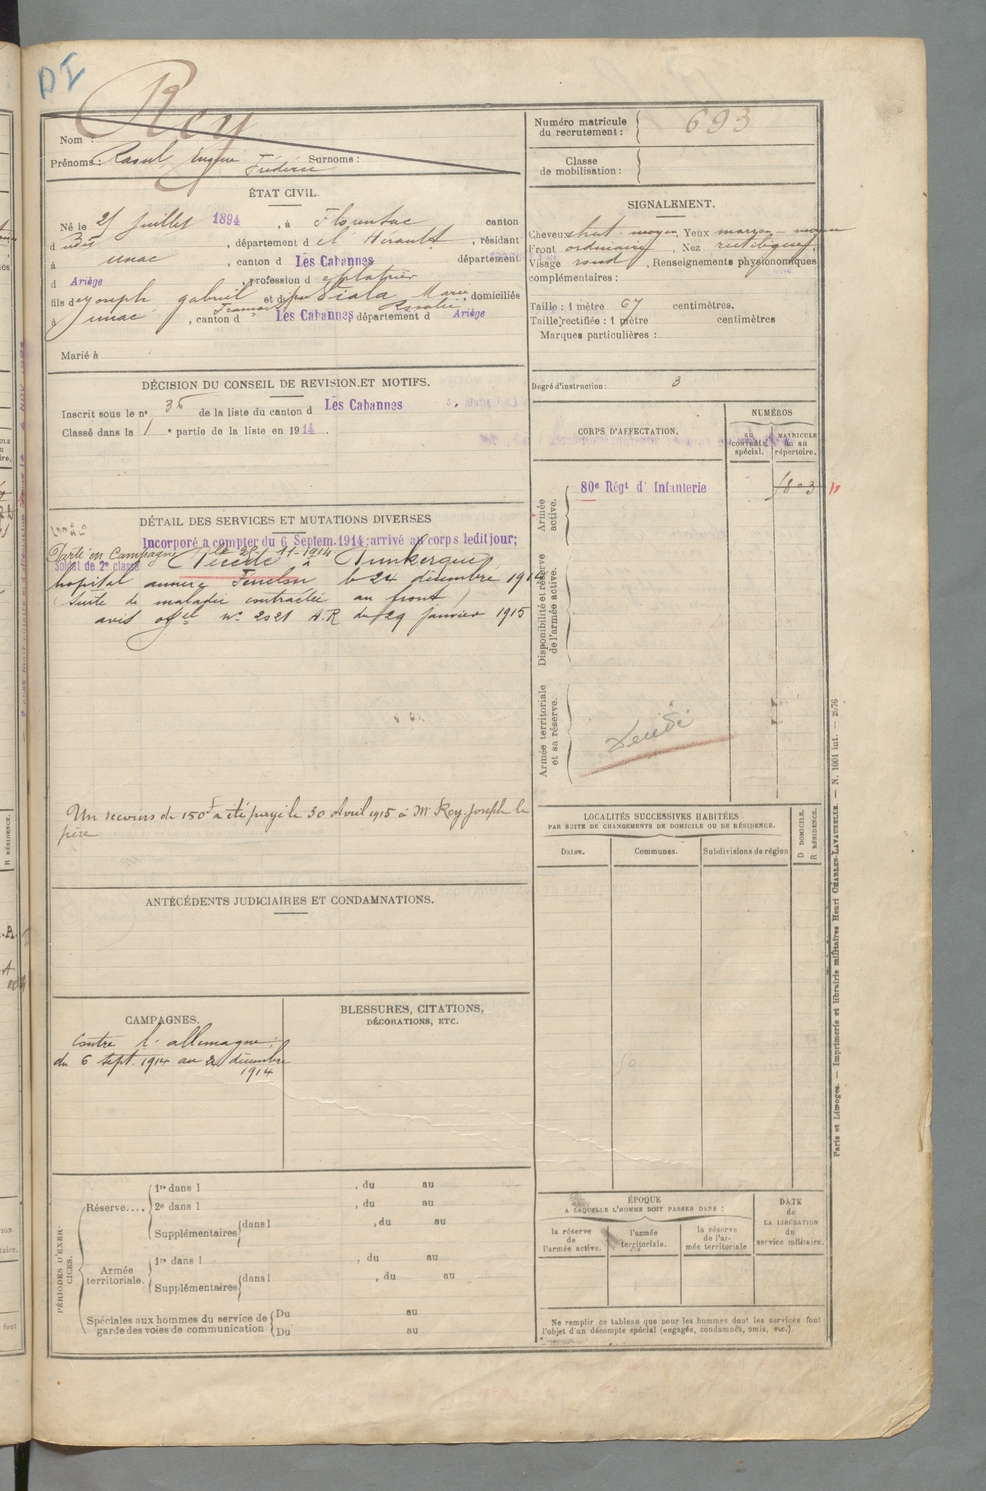 DI
Nom : Rey
Prénoms : Raoul Eugène Frédéric Surnoms :
Numéro matricule du recrutement : 693
Classe de mobilisation :
ÉTAT CIVIL.
Né le 25 juillet 1894, à Florensac canton
d dudit, département d e l'Hérault, résidant
à unac, canton d Les Cabannes département
d Ariège, profession d
fils de joseph gabriel François et de Piala Marie Rosalie, domiciliés
à unac, canton d Les Cabannes département d Ariège
Marié à
SIGNALEMENT.
Cheveux chat. moyen, Yeux marron-moyen
Front ordinaire, Nez rectiligne,
Visage rond, Renseignements physionomiques
complémentaires :
Taille : 1 mètre 67 centimètres.
Taille rectifiée : 1 mètre centimètres
Marques particulières :
Degré d'instruction : 3
DÉCISION DU CONSEIL DE REVISION ET MOTIFS.
Inscrit sous le n° 36 de la liste du canton d Les Cabannes
Classé dans la 1 e partie de la liste en 1914
CORPS D'AFFECTATION.
NUMÉROS
au contrôle spécial.
matricule ou au répertoire.
Armée active.
80e Régt d' Infanterie
1803
Disponibilité et réserve de l'armée active.
Armée territoriale et sa réserve.
DÉTAIL DES SERVICES ET MUTATIONS DIVERSES
Incorporé a compter du 6 Septem. 1914; arrivé au corps ledit jour;
Soldat de 2e classe
Parti en Campagne le 28-11-1914
Décédé à Dunkerque,
hopital annexe Fénelon le 24 décembre 1914
(suite de maladie contractée au front)
avis offel n° 2021 A.R du 29 janvier 1915
Un secours de 150f a été payé le 30 Avril 1915 à Mr Rey Joseph le
père
LOCALITÉS SUCCESSIVES HABITÉES
PAR SUITE DE CHANGEMENTS DE DOMICILE OU DE RÉSIDENCE.
Dates.
Communes.
Subdivisions de région
D DOMICILE.
R RÉSIDENCE.
ANTÉCÉDENTS JUDICIAIRES ET CONDAMNATIONS.
CAMPAGNES.
Contre l'allemagne:
du 6 sept. 1914 au 24 décembre
1914
BLESSURES, CITATIONS,
DÉCORATIONS, ETC.
PÉRIODES D'EXERCICES.
Réserve....
1re dans l , du au
2e dans l , du au
Supplémentaires dans l , du au
Armée territoriale.
1re dans l , du au
Supplémentaires dans l , du au
Spéciales aux hommes du service de garde des voies de communication
Du au
Du au
ÉPOQUE
A LAQUELLE L'HOMME DOIT PASSER DANS :
la réserve de l'armée active.
l'armée territoriale.
la réserve de l'armée territoriale
DATE de LA LIBÉRATION du service militaire.
Ne remplir ce tableau que pour les hommes dont les services font
l'objet d'un décompte spécial (engagés, condamnés, omis, etc.)
Paris et Limoges. — Imprimerie et librairie militaires Henri CHARLES-LAVAUZELLE. — N. 1001 int. — 2676